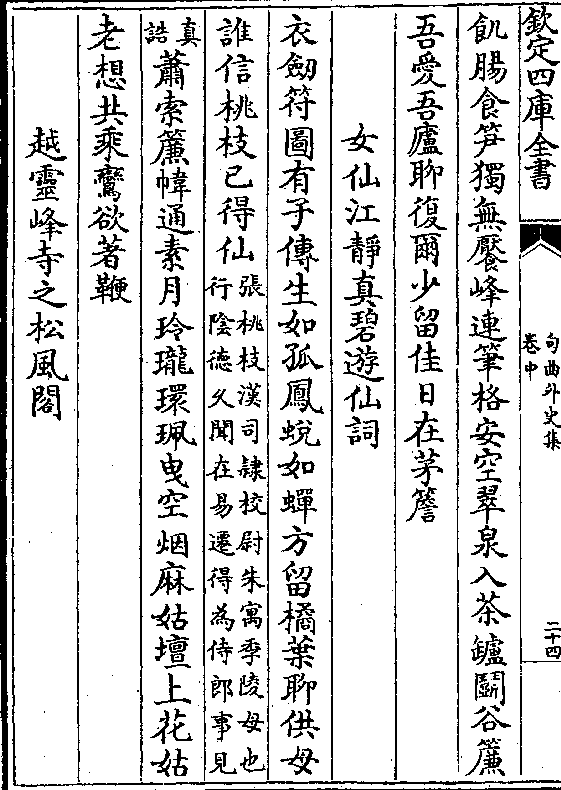 欽定四庫全書
句曲外史集
卷中
二十四
飢腸食筍獨無饜峰連筆格安空翠泉入茶鑪鬭谷簾
吾愛吾廬聊復爾少留佳日在茅簷
女仙江靜真碧遊仙詞
衣劒符圖有子傳生如孤鳳蛻如蟬方留橘葉聊供母
誰信桃枝已得仙張桃枝漢司隸校尉朱寓季陵母也
行陰德久聞在易遷得為侍郎事見
真
誥蕭索簾幃通素月玲瓏環珮曳空烟麻姑壇上花姑
老想共乘鸞欲著鞭
越靈峰寺之松風閣